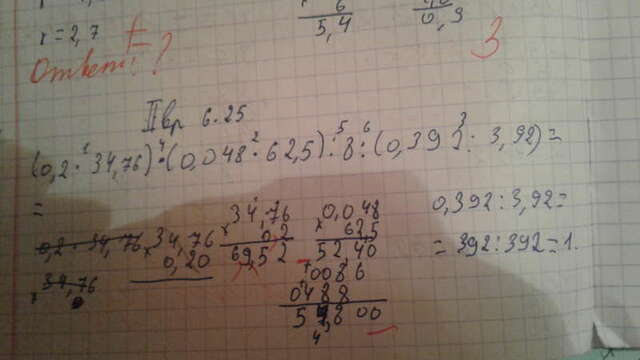 6
5,4
0,9
x = 2,7
Ответ: ?
3
II вр 6.25
(0,2 · 34,76) · (0,048 · 62,5) : 8 : (0,392 : 3,92) =
1 4 2 5 6 3
=
0,2 · 34,76
× 34,76
× 34,76
0,20
× 34,76
0,2
69,52
0,048
× 62,5
52,40
+ 0086
0488
0,392 : 3,92 =
= 392 : 392 = 1.